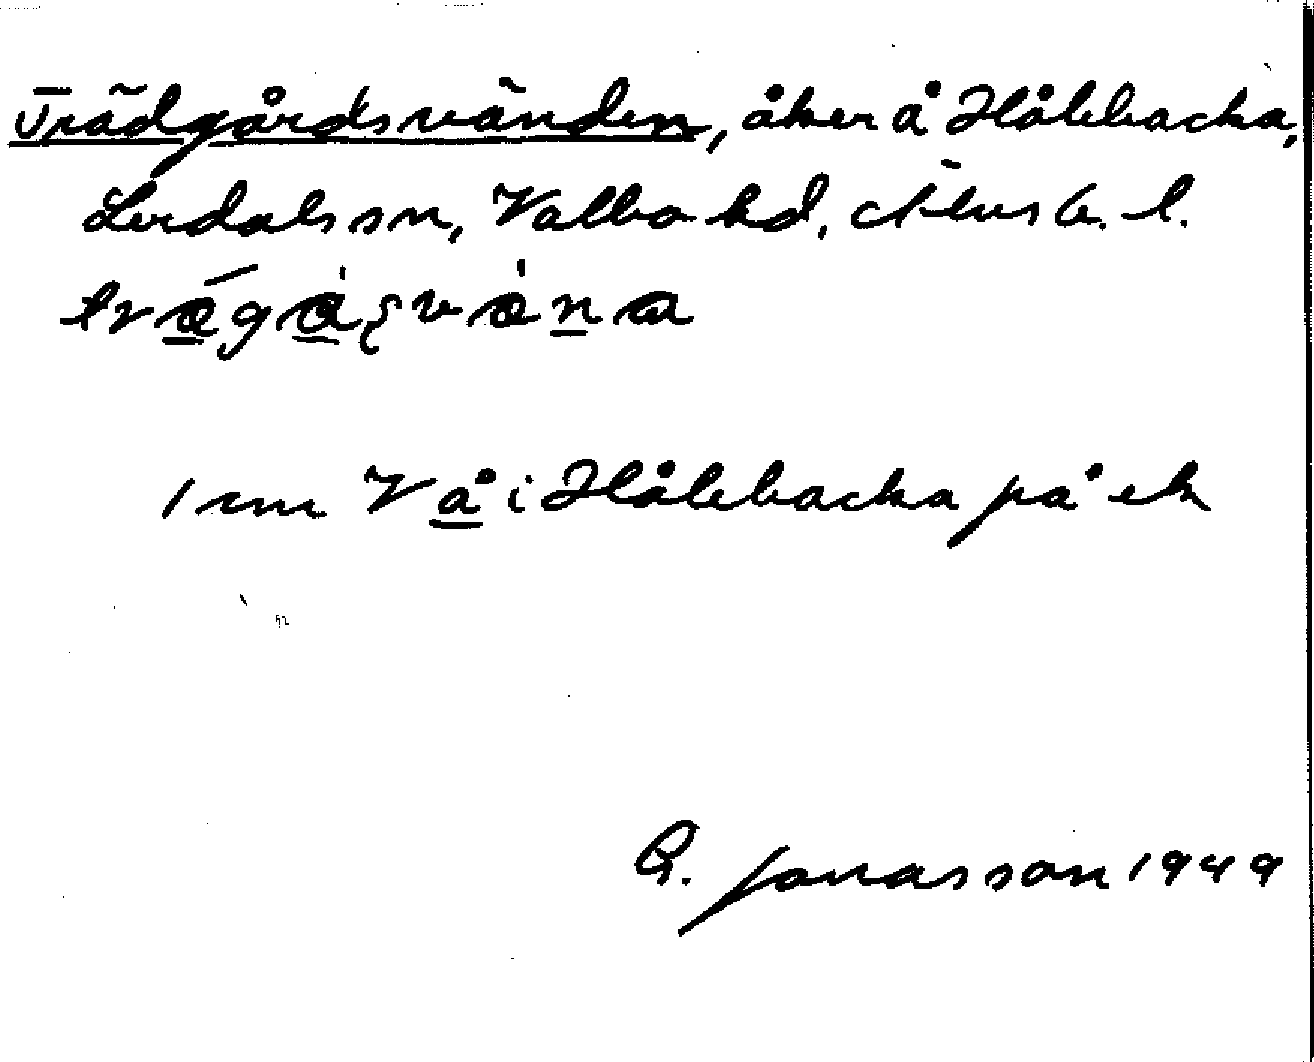 Trädgårdsvänden, åker å Hålebacka,
Lerdals sn, Valbo hd, Älvsb. l.
1 mm V å i Hålebacka på ek
G. Jonasson 1949